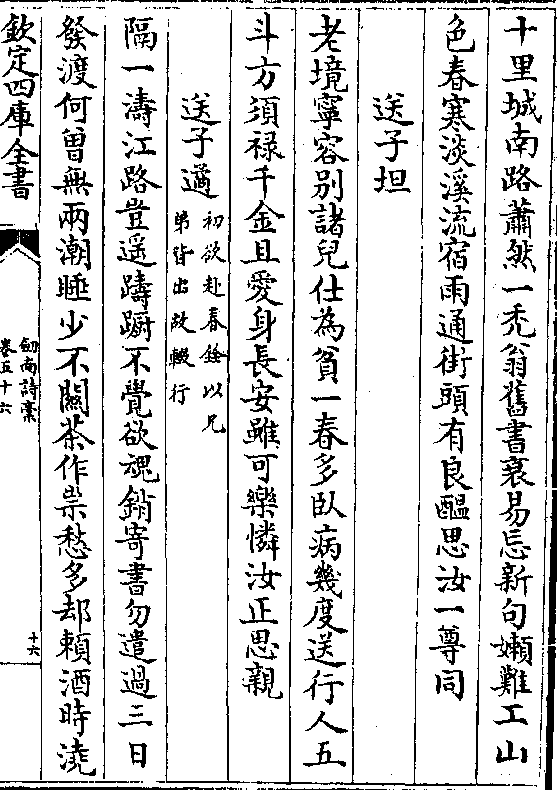 十里城南路蕭然一禿翁舊書衰易忘新句嬾難工山
色春寒淡溪流宿雨通街頭有良醖思汝一尊同
送子坦
老境寧容別諸兒仕為貧一春多臥病幾度送行人五
斗方須禄千金且愛身長安雖可樂憐汝正思親
送子遹初欲赴春銓以兄
弟皆出故輟行
隔一濤江路豈遥躊躕不覺欲魂銷寄書勿遣過三日
發渡何曽無兩潮睡少不關茶作祟愁多却賴酒時澆
欽定四庫全書
劒南詩稾
卷五十六
十六